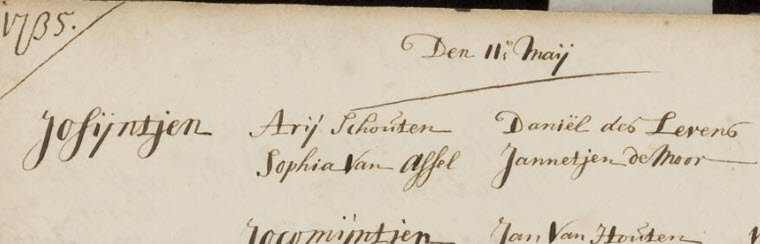 1735.
Den 11e Maij
Josijntjen Arij Schouten Daniël des Levens
Sophia Van Assel Jannetjen de Moor
Jocomijntjen Jan Van Houten